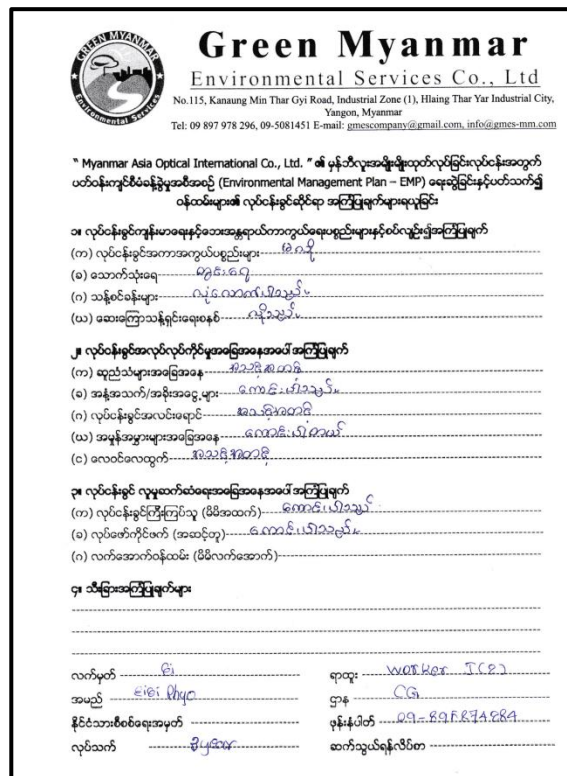 GREEN MYANMAR
Environmental Services
Green Myanmar
Environmental Services Co., Ltd
No.115, Kanaung Min Thar Gyi Road, Industrial Zone (1), Hlaing Thar Yar Industrial City,
Yangon, Myanmar
Tel: 09 897 978 296, 09-5081451 E-mail: gmescompany@gmail.com, info@gmes-mm.com
" Myanmar Asia Optical International Co., Ltd. " ၏ မှန်ဘီလူးအမျိုးမျိုးထုတ်လုပ်ခြင်းလုပ်ငန်းအတွက်
ပတ်ဝန်းကျင်စီမံခန့်ခွဲမှုအစီအစဉ် (Environmental Management Plan – EMP) ရေးဆွဲခြင်းနှင့်ပတ်သက်၍
ဝန်ထမ်းများ၏ လုပ်ငန်းခွင်ဆိုင်ရာ အကြံပြုချက်များရယူခြင်း
၁။ လုပ်ငန်းခွင်ကျန်းမာရေးနှင့်ဘေးအန္တရာယ်ကာကွယ်ရေးပစ္စည်းများနှင့်စပ်လျဉ်း၍အကြံပြုချက်
(က) လုပ်ငန်းခွင်အကာအကွယ်ပစ္စည်းများ
(ခ) သောက်သုံးရေ
(ဂ) သန့်စင်ခန်းများ လုံလောက်ပါသည်။
(ဃ) ဆေးကြောသန့်ရှင်းရေးစနစ်
၂။ လုပ်ငန်းခွင်အလုပ်လုပ်ကိုင်မှုအခြေအနေအပေါ် အကြံပြုချက်
(က) ဆူညံသံများအခြေအနေ အသင့်အတင့်
(ခ) အနံ့အသက်/အခိုးအငွေ့များ ကောင်းပါသည်။
(ဂ) လုပ်ငန်းခွင်အလင်းရောင် အသင့်အတင့်
(ဃ) အမှုန်အမွှားများအခြေအနေ ကောင်းပါတယ်
(င) လေဝင်လေထွက် အသင့်အတင့်
၃။ လုပ်ငန်းခွင် လူမှုဆက်ဆံရေးအခြေအနေအပေါ် အကြံပြုချက်
(က) လုပ်ငန်းခွင်ကြီးကြပ်သူ (မိမိအထက်) ကောင်းပါသည်
(ခ) လုပ်ဖော်ကိုင်ဖက် (အဆင့်တူ) ကောင်းပါသည်။
(ဂ) လက်အောက်ဝန်ထမ်း (မိမိလက်အောက်)
၄။ သီးခြားအကြံပြုချက်များ
လက်မှတ် Ei
ရာထူး worker
အမည် EiEi Phyo
ဌာန CG
နိုင်ငံသားစိစစ်ရေးအမှတ်
ဖုန်းနံပါတ်
လုပ်သက် 3year
ဆက်သွယ်ရန်လိပ်စာ